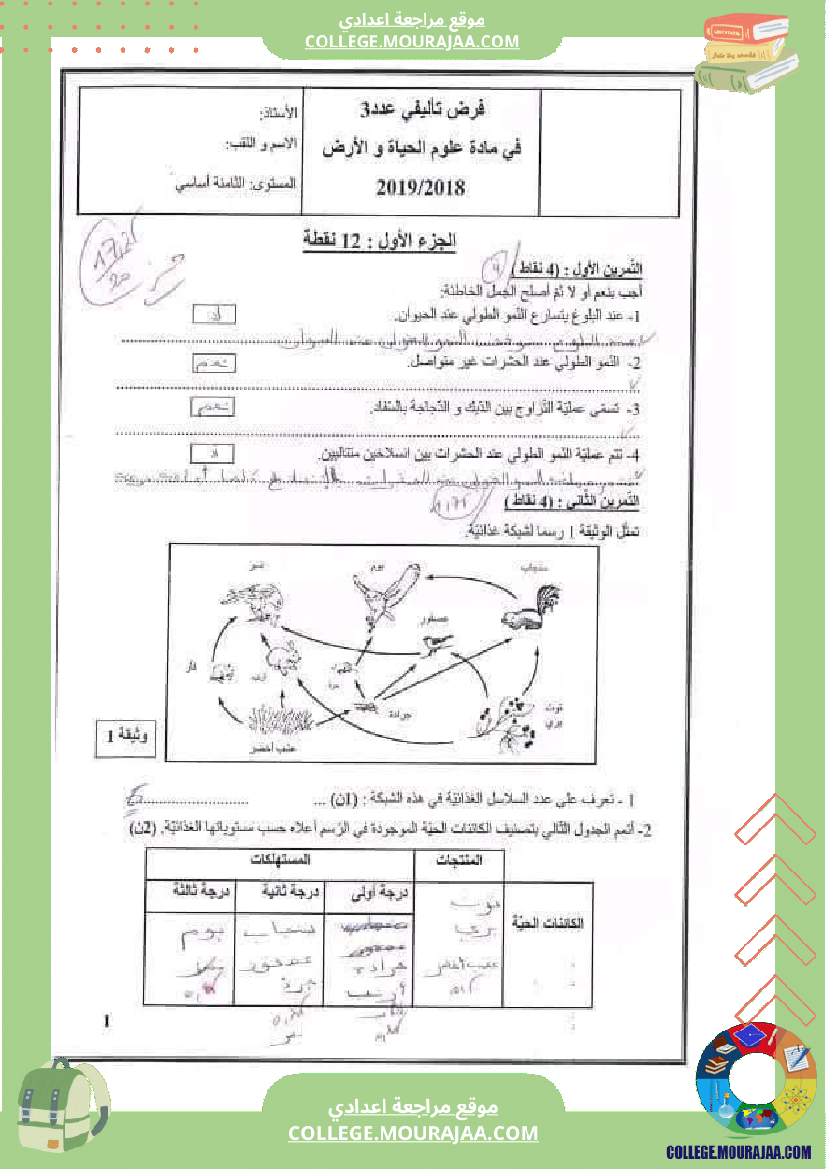 موقع مراجعة اعدادي
COLLEGE.MOURAJAA.COM
الأستاذ:
الاسم و اللقب:
المستوى: الثامنة أساسي
فرض تأليفي عدد3
في مادة علوم الحياة و الأرض
2019/2018
17,25
20
الجزء الأول : 12 نقطة
التمرين الأول : (4 نقاط)
4
أجب بنعم أو لا ثم أصلح الجمل الخاطئة:
1- عند البلوغ يتسارع النمو الطولي عند الحيوان.
لا
عند البلوغ يتوقف النمو الطولي عند الحيوان
2- النمو الطولي عند الحشرات غير متواصل.
نعم
3- تسمى عملية التزاوج بين الديك و الدجاجة بالسفاد.
نعم
4- تتم عملية النمو الطولي عند الحشرات بين انسلاخين متتاليين.
لا
التمرين الثاني : (4 نقاط)
تمثل الوثيقة 1 رسما لشبكة غذائية.
نسر
بوم
سنجاب
عصفور
فأر
أرنب
جرادة
توت
بري
عشب أخضر
وثيقة 1
1 - تعرف على عدد السلاسل الغذائية في هذه الشبكة : (1ن) ...
2- أتمم الجدول التالي بتصنيف الكائنات الحية الموجودة في الرسم أعلاه حسب مستوياتها الغذائية. (2ن)
المنتجات
المستهلكات
درجة أولى
درجة ثانية
درجة ثالثة
الكائنات الحية
توت
بري
عشب أخضر
جرادة
أرنب
سنجاب
عصفور
بوم
1
موقع مراجعة اعدادي
COLLEGE.MOURAJAA.COM
COLLEGE.MOURAJAA.COM